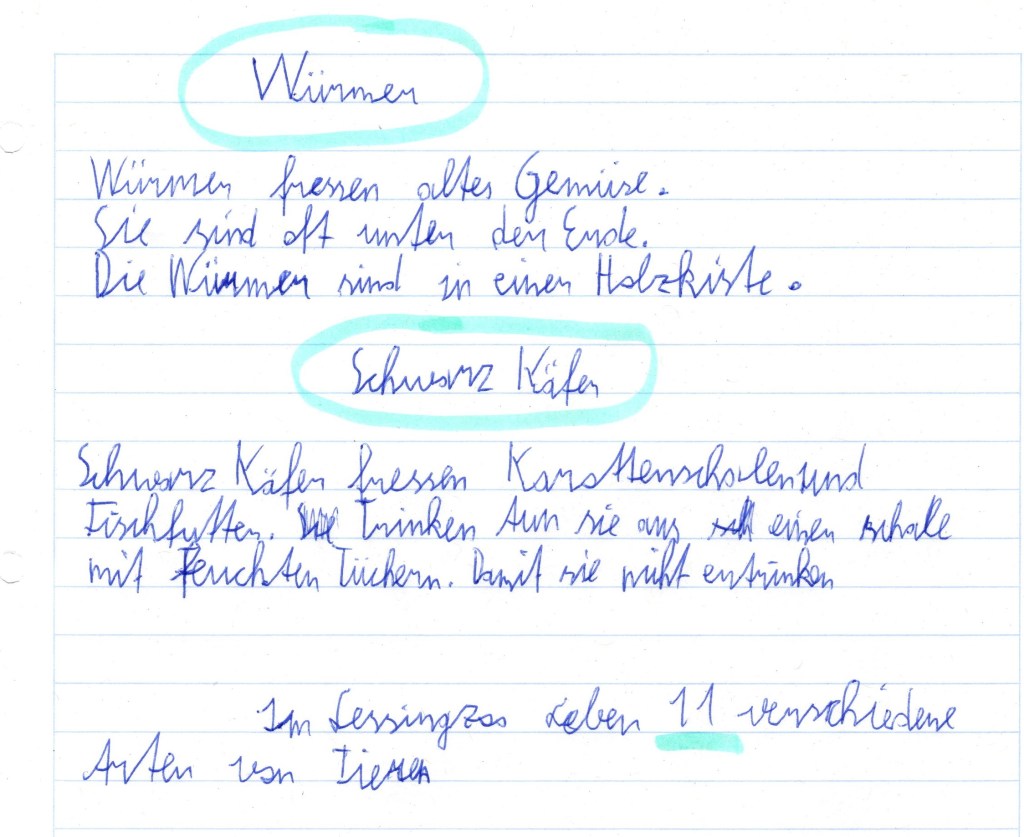 Würmer
Würmer fressen altes Gemüse.
Sie sind oft unter der Erde.
Die Würmer sind in einer Holzkiste.
Schwarz Käfer
Schwarz Käfer fressen Karottenschalen und
Fischfutter. Trinken tun sie aus einer schale
mit Feuchten Tüchern. Damit sie nicht ertrinken
Im Lessingzoo Leben 11 verschiedene
Arten von Tieren